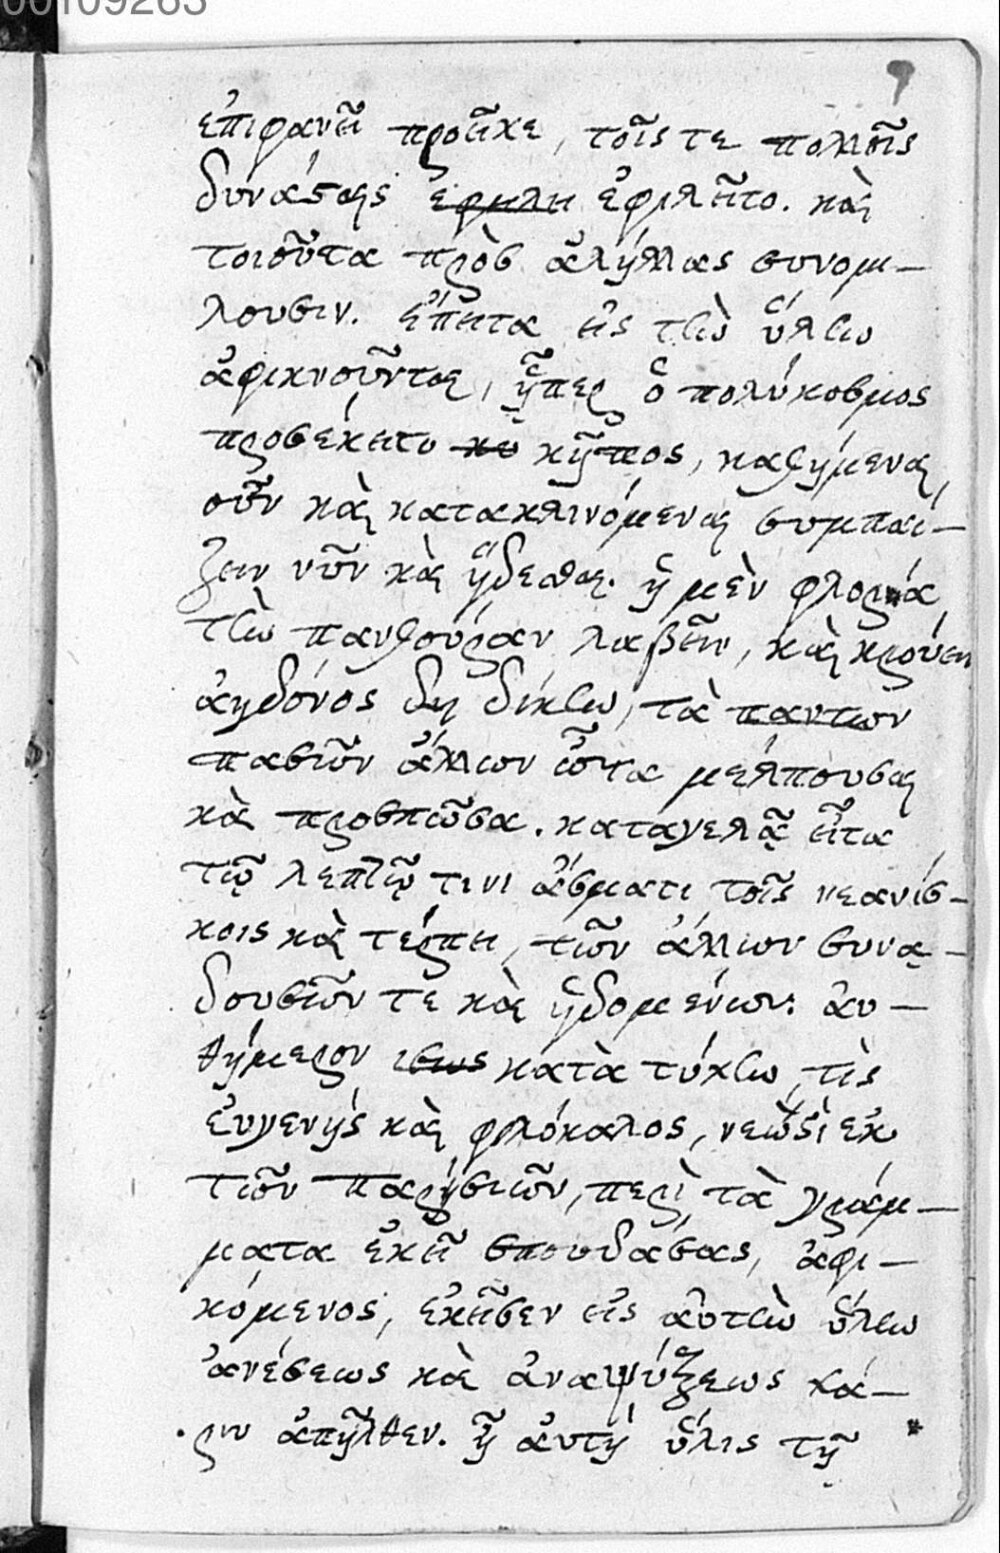 00109263
ἐπιφανεῖ προεῖχε, τοῖς τε πολλοῖς
δυνάσταις ἐφιλεῖτο. καὶ
τοιοῦτα πρὸς ἀλήλλας συνομι-
λουσιν. ἔπειτα εἰς τὴν ὕλην
ἀφικνοῦνται, ᾗπερ ὁ πολύκοσμος
προσέκειτο κῆπος, καθήμεναι
οὖν καὶ κατακλινόμεναι συμπαί-
ζειν νῦν καὶ ἥδεσθαι. ἡ μὲν φλοριά
τὴν πανθούραν λαβεῖν, καὶ κρούειν
ἀηδόνος δὴ δίκην, τὰ παντων
πασῶν ἄλλων ὦτα μέλπουσαι
καὶ προσπῶσα. καταγελᾷ εἶτα
τῷ λεπτῷ τινι ἄσματι τοῖς νεανίσ-
κοις καὶ τέρπει, τῶν ἄλλων συνᾳ-
δουσῶν τε καὶ ἡδομένων. αυ-
θήμερον ισως κατὰ τύχην, τὶς
εὐγενής καὶ φιλόκαλος, νεωστὶ ἐκ
τῶν παρησιῶν, περὶ τὰ γράμ-
ματα ἐκεῖ σπουδάσας, ἀφι-
κόμενος, ἐκεῖσεν εἰς αὐτὴν ὕλην
ἀνέσεως καὶ ἀναψύξεως χά-
ριν ἀπῆλθεν. ἦ αὐτή ὕλις τῇ